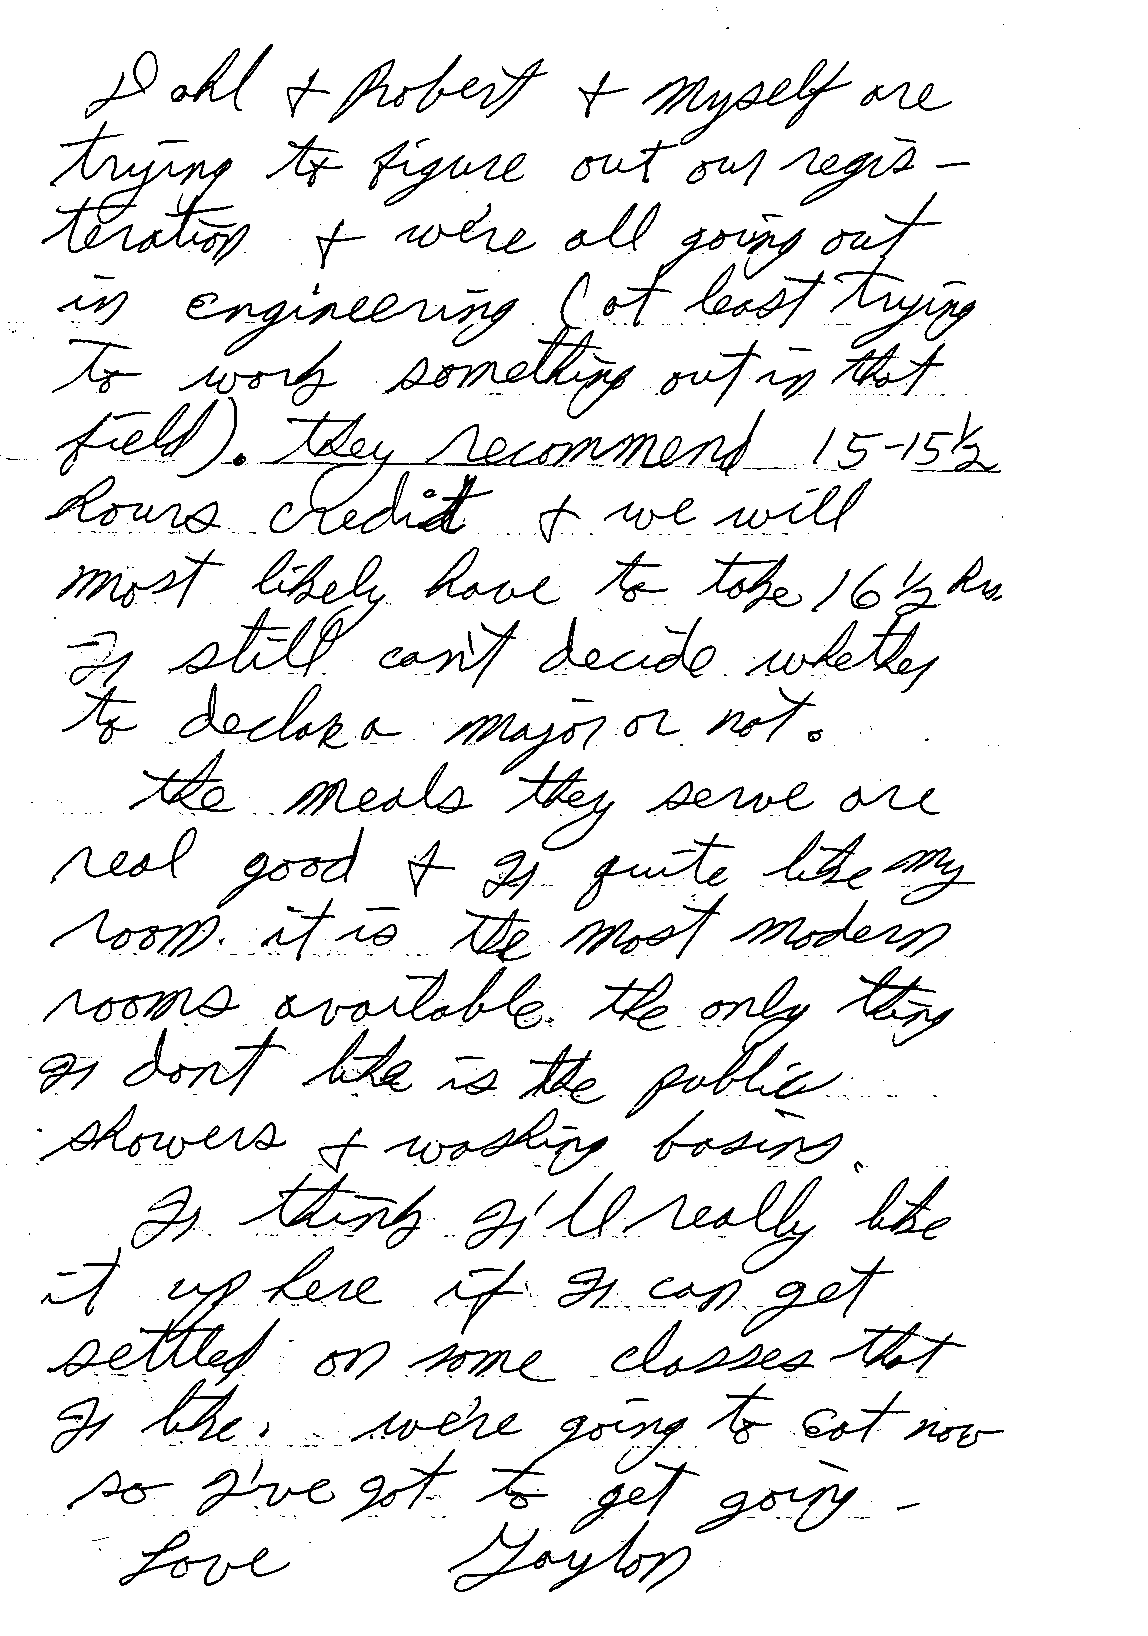 Dahl + Robert + myself are
trying to figure out our regis-
teration + we're all going out
in engineering (at least trying
to work something out in that
field). they recommend 15-15½
hours credit + we will
most likely have to take 16½ hrs.
I still can't decide whether
to declare a major or not.
the meals they serve are
real good + I quite like my
room. it is the most modern
rooms available. the only thing
I dont like is the public
showers + washing basins.
I think I'll really like
it up here if I can get
settled on some classes that
I like. we're going to eat now
so I've got to get going -
Love Gaylon